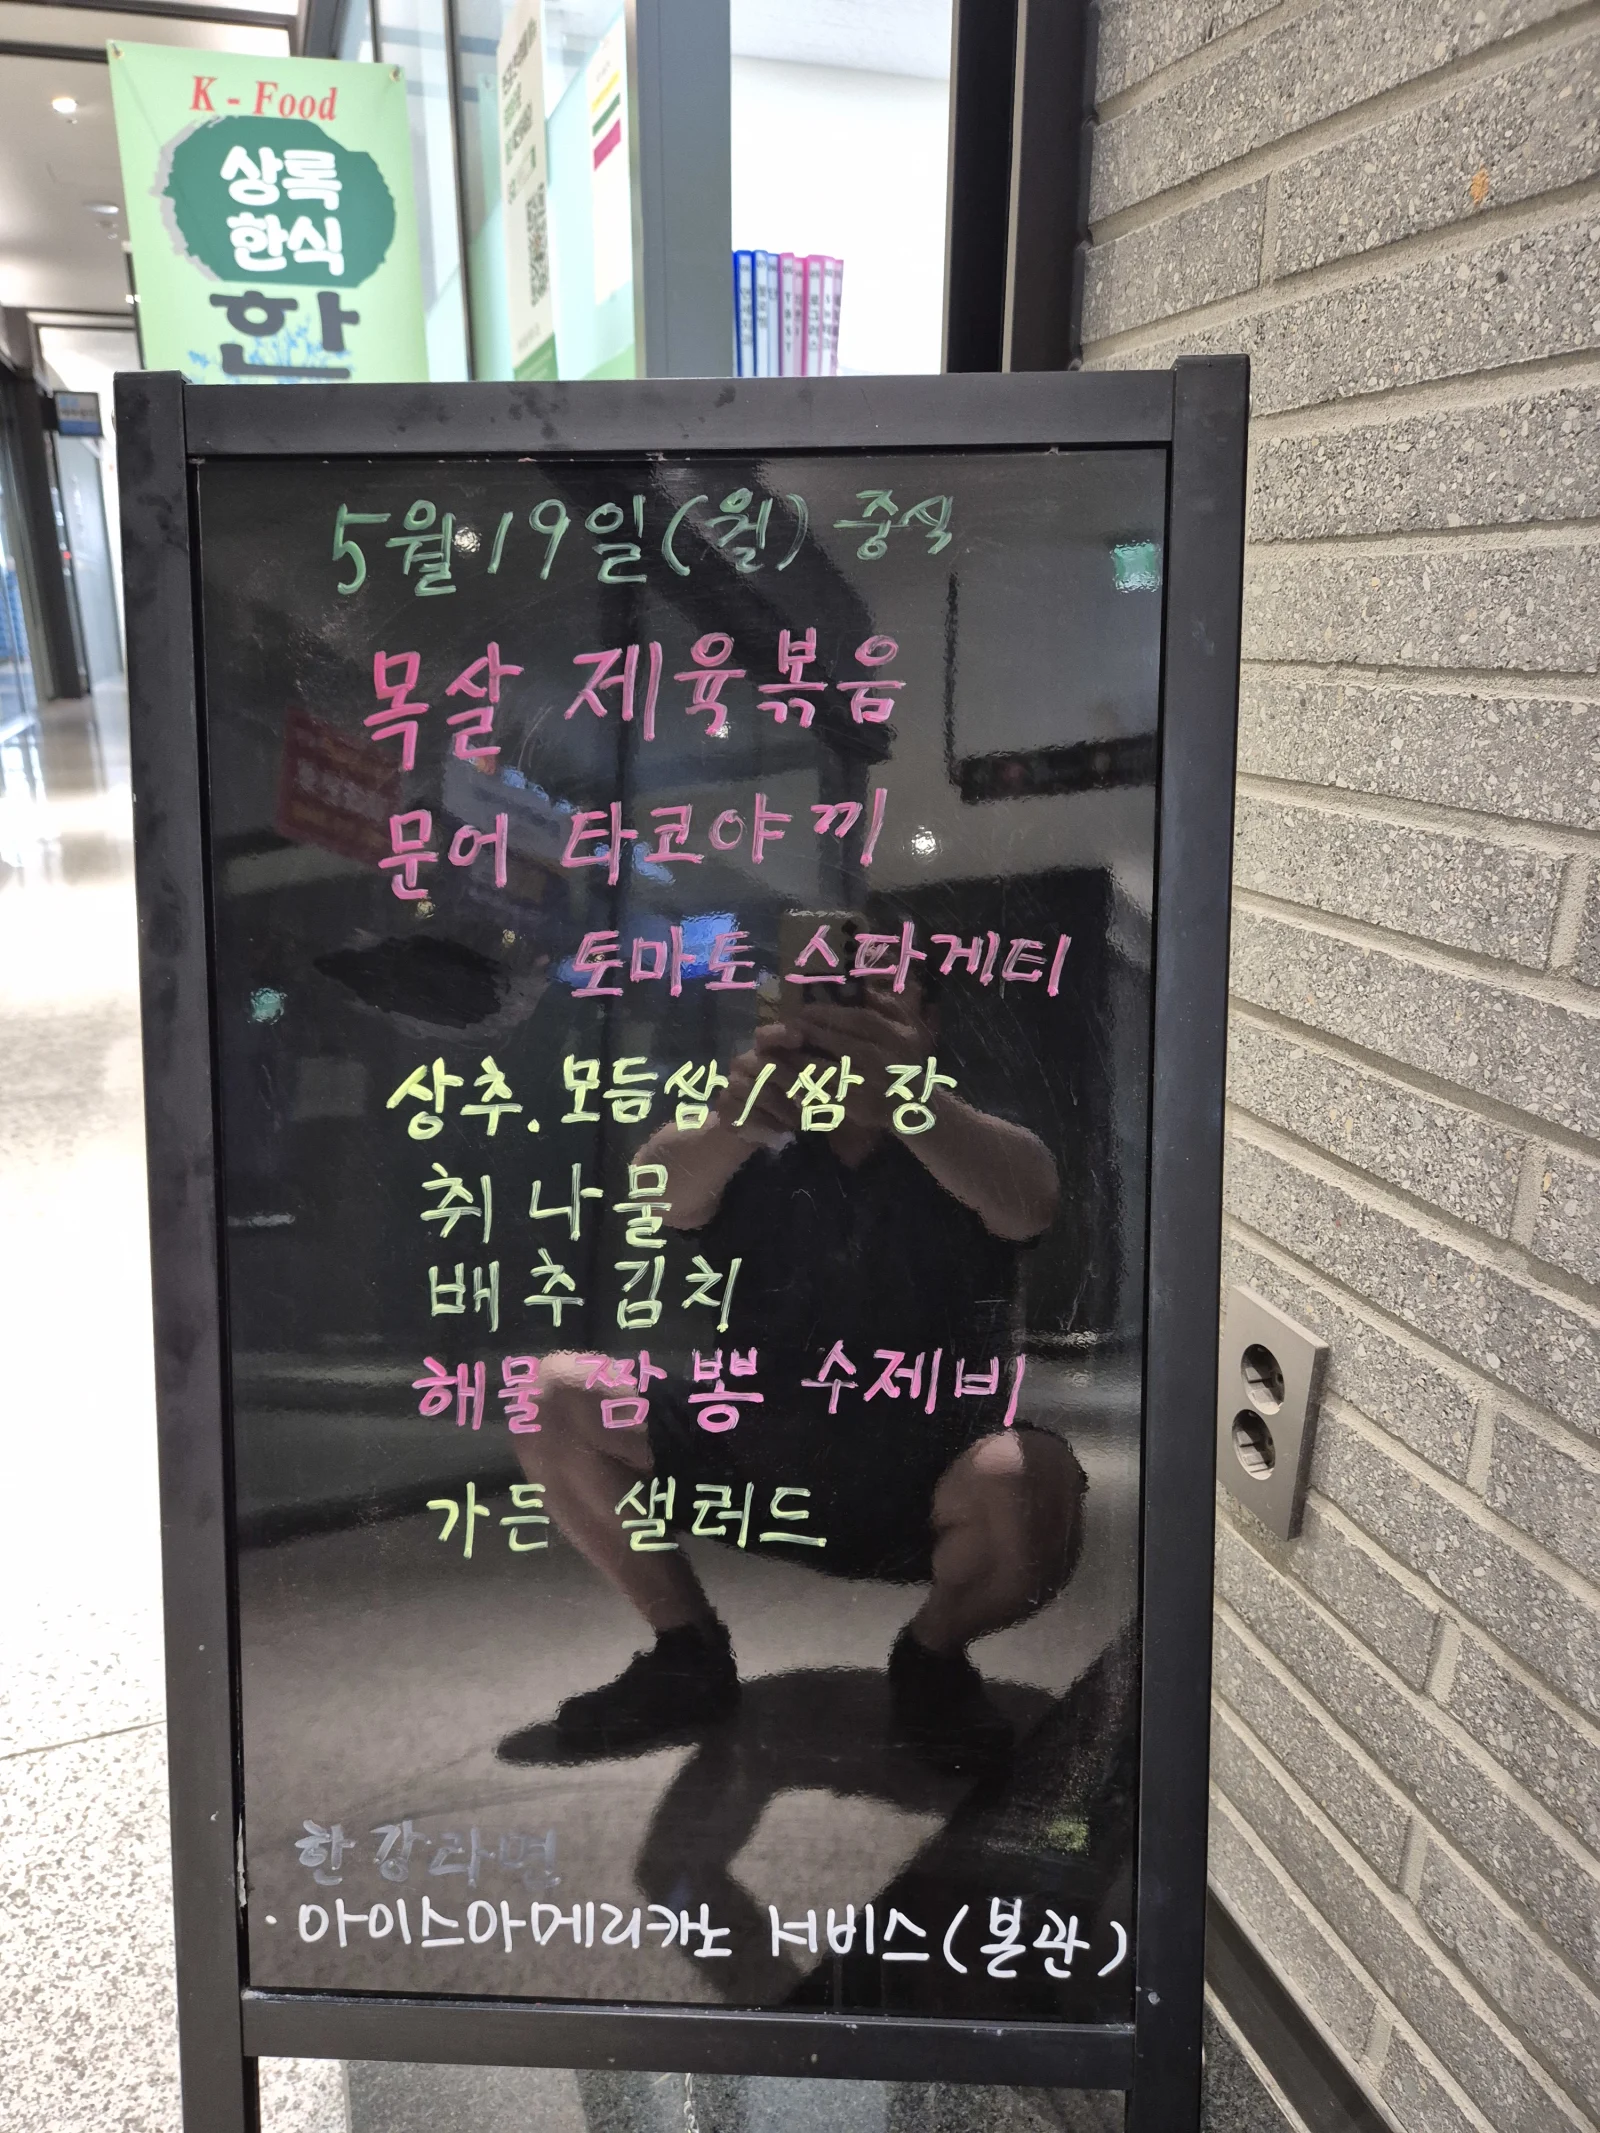 K - Food
상록
한식
한
5월19일(월) 중식
목살 제육볶음
문어 타코야끼
토마토 스파게티
상추. 모듬쌈/쌈장
취나물
배추김치
해물짬뽕 수제비
가든 샐러드
한강라면
· 아이스아메리카노 서비스(본관)